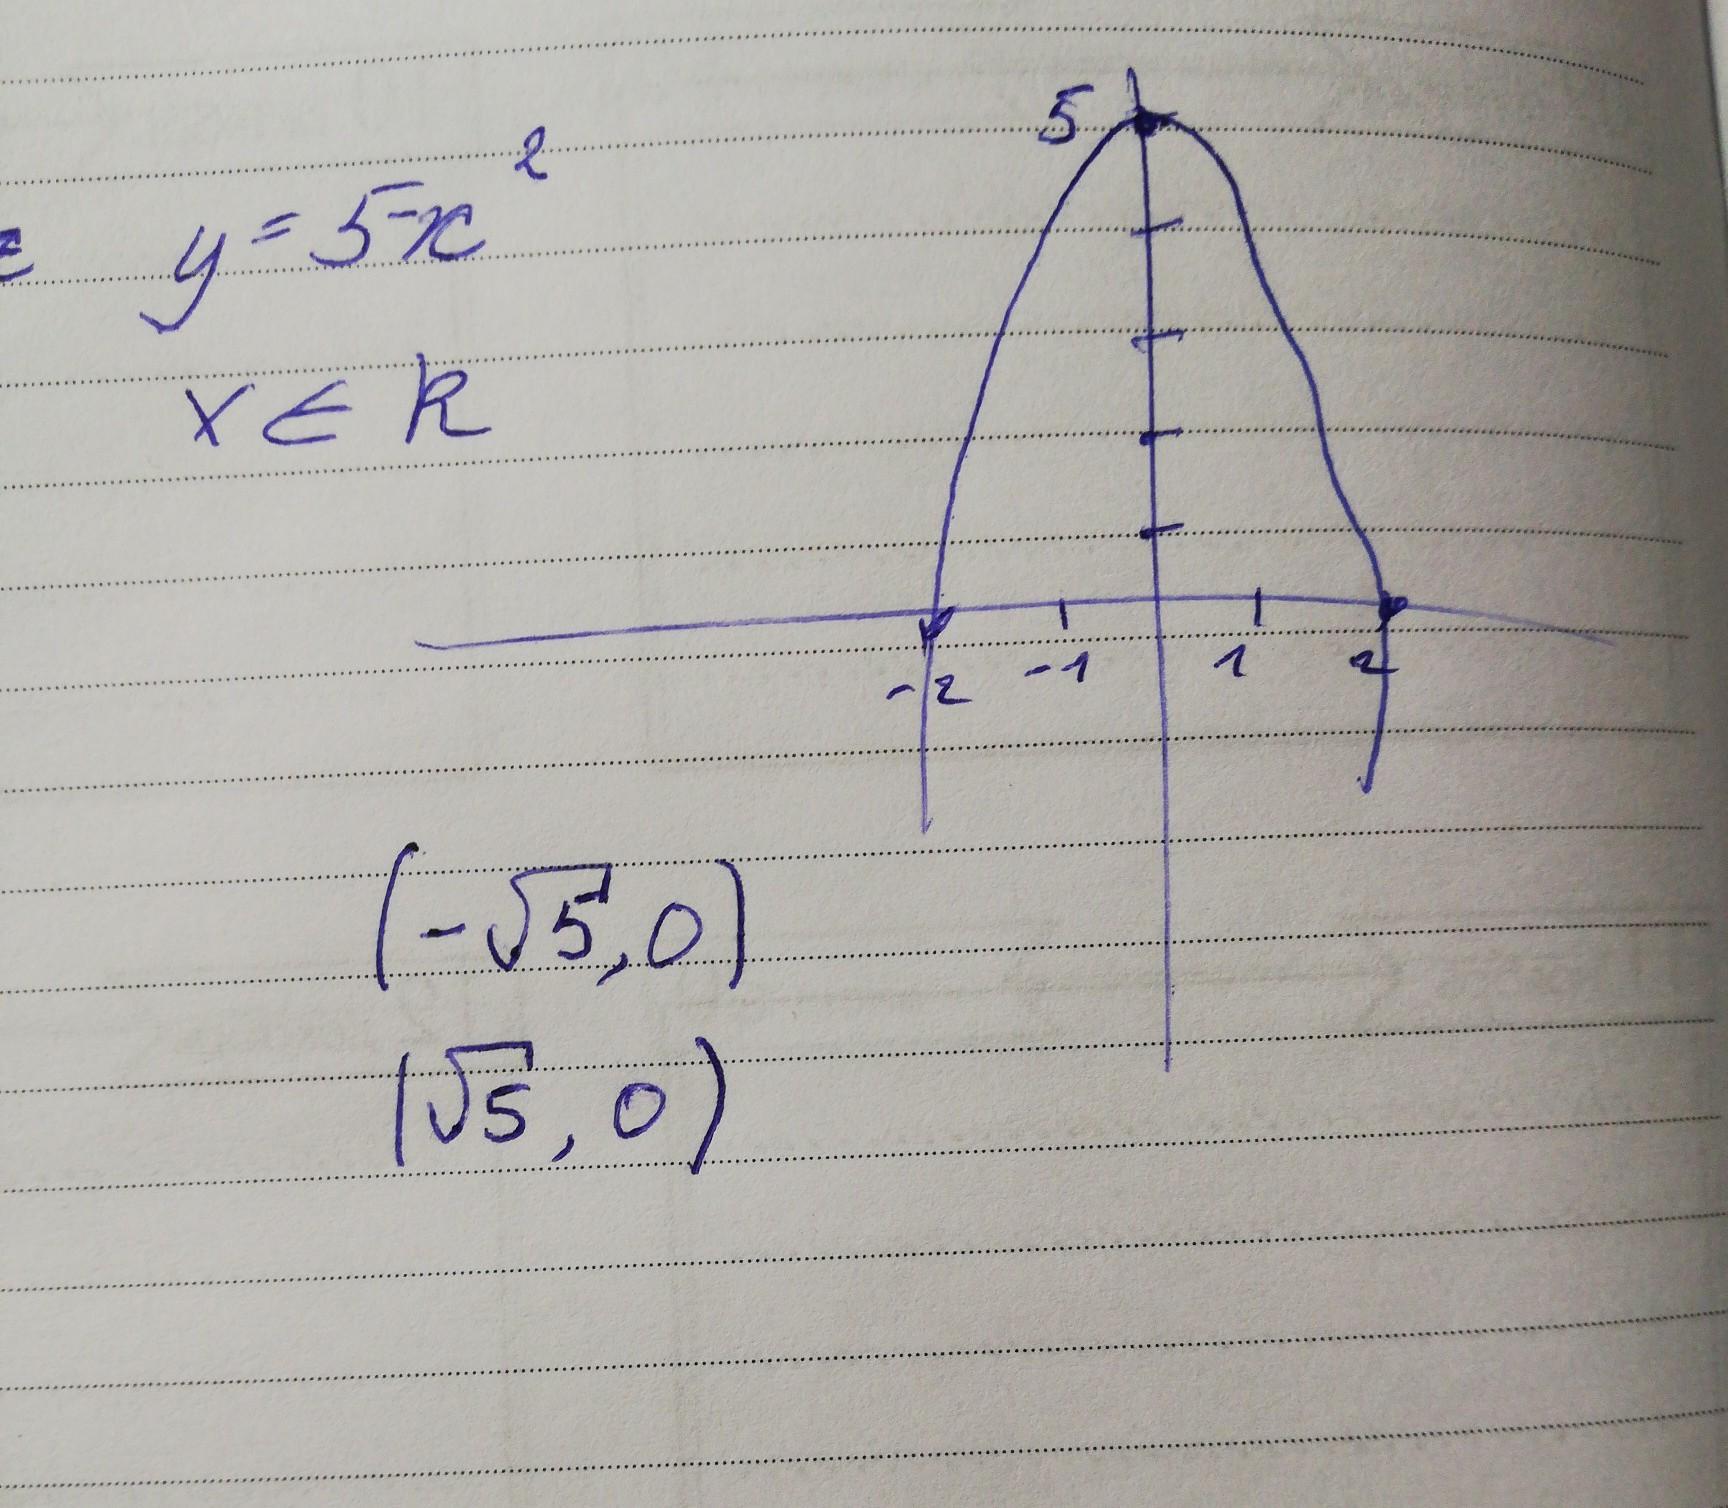 y = 5-x²
x ∈ R
5
-2 -1 1 2
(-√5, 0)
(√5, 0)